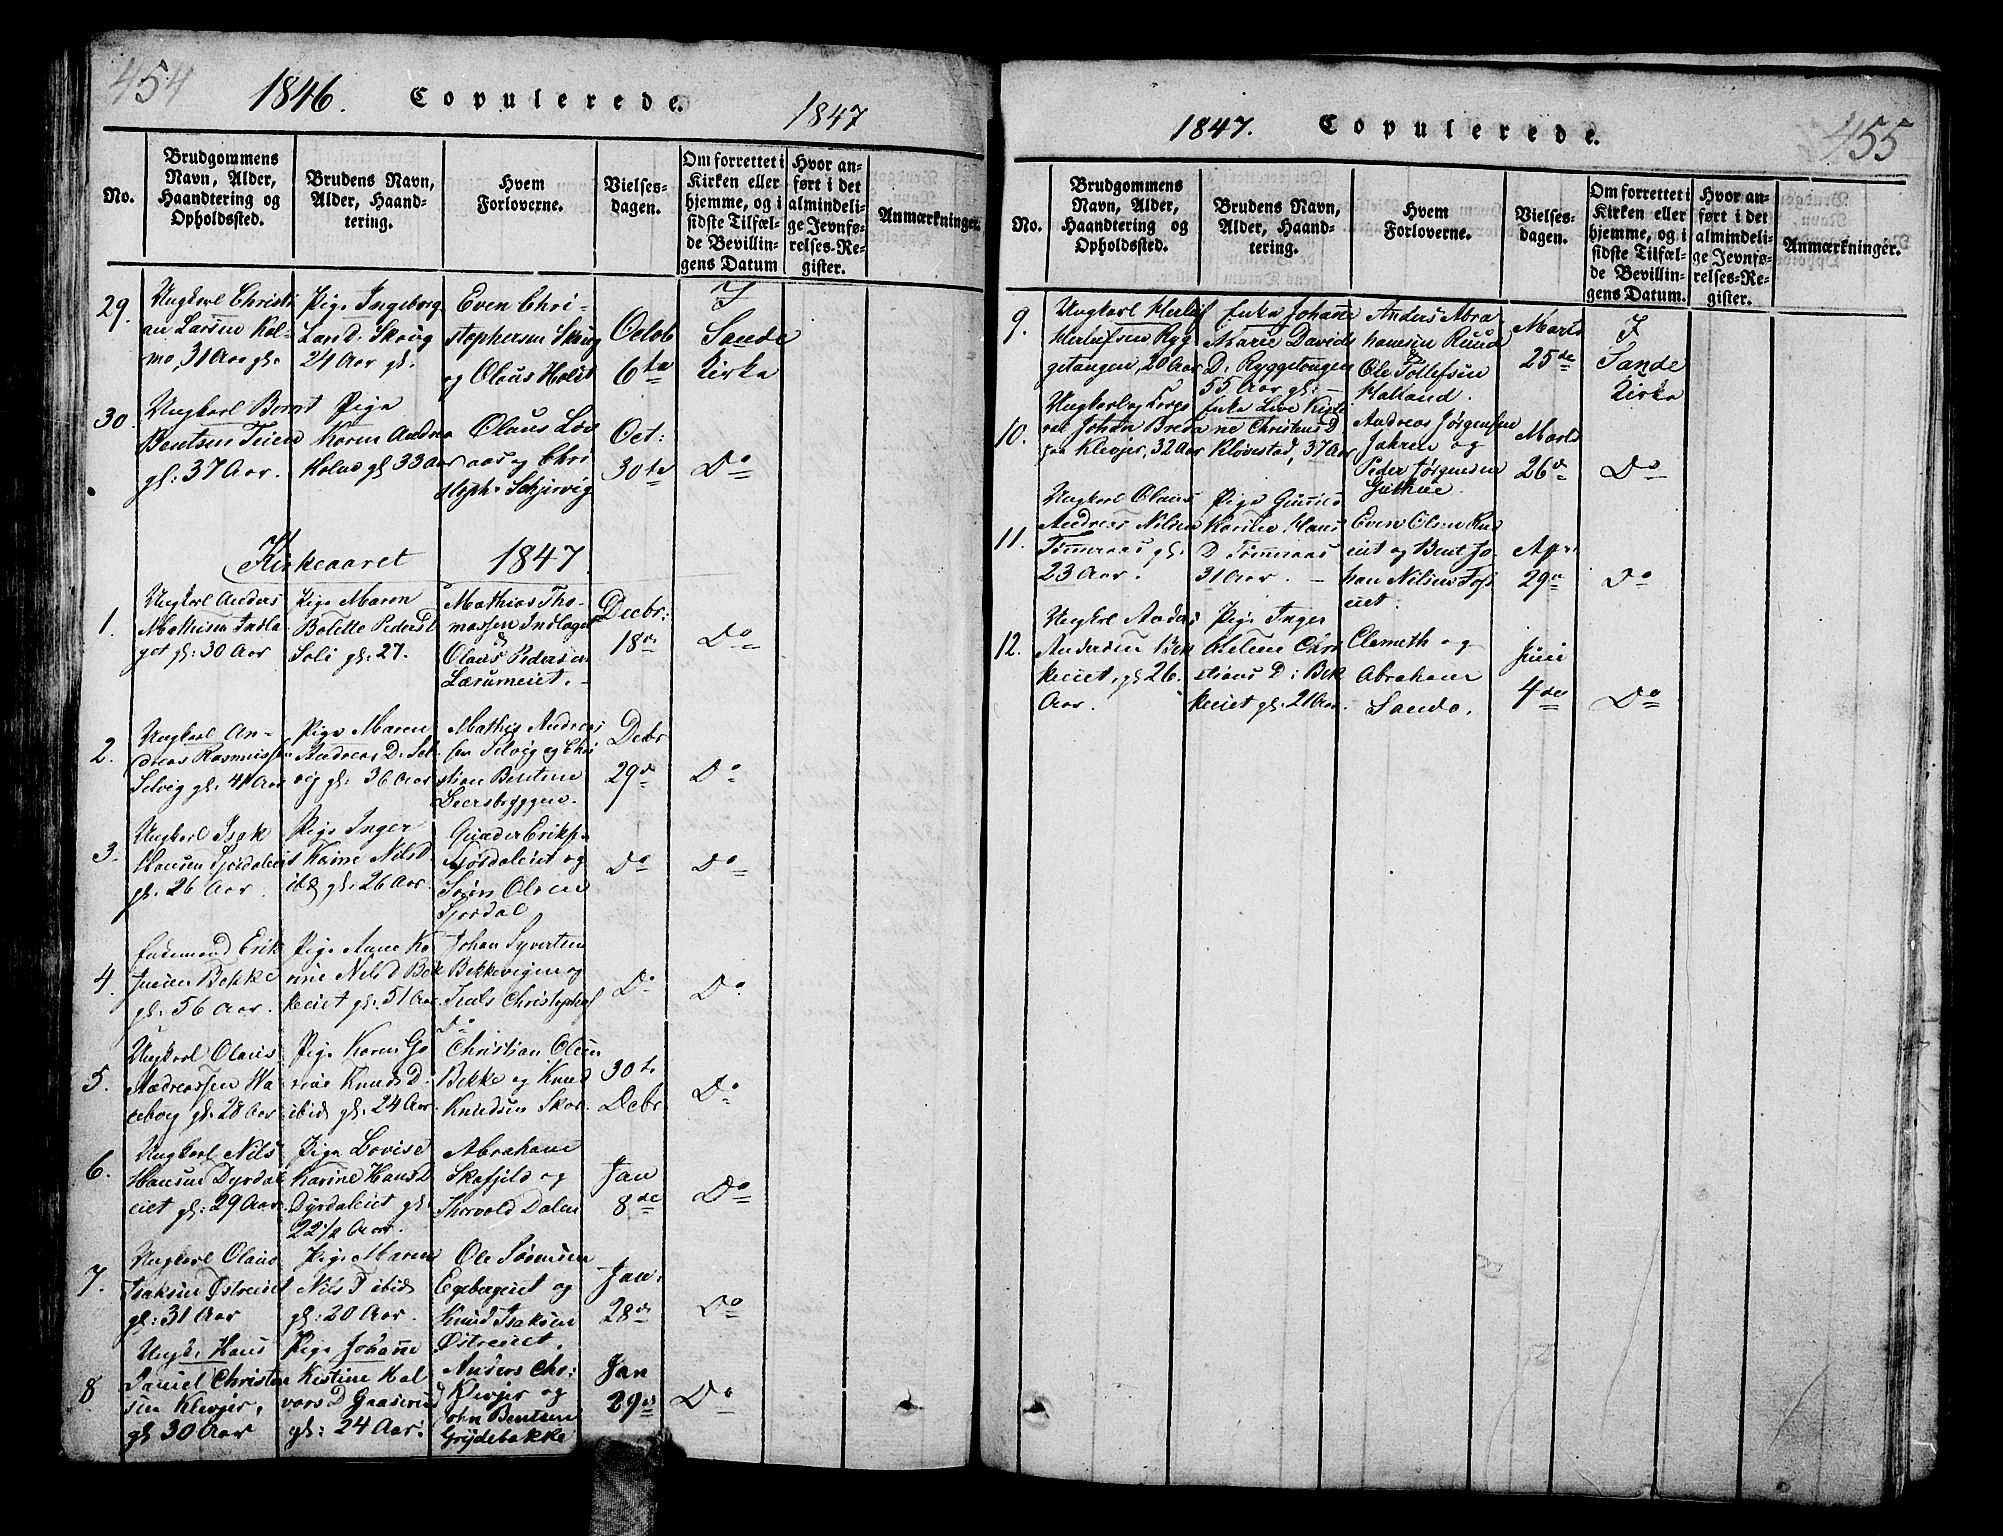 454
1846. Copulerede. 1847
No.
Brudgommens Navn, Alder, Haandtering og Opholdssted.
Brudens Navn, Alder, Haandtering.
Hvem Forloverne.
Vielsesdagen.
Om forrettet i Kirken eller hjemme, og i sidste Tilfælde Bevillingens Datum
Hvor anført i det almindelige Jevnførelses-Register.
Anmærkninger.
29.
Ungkarl Christi
an Larsen Hol-
mo, 31 Aar gl.
Pige Ingeborg
Lars D. Skoug
24 Aar gl.
Even Chri-
stophersen Skoug
og Olaus Holst
Octob
6te
I
Sande
Kirke
30.
Ungkarl Bernt
Bentsen Teien
gl: 37 Aar.
Pige
Karen Andrea
gl 33 Aar
Olaus
og Chri
stoph.
Oct:
30te
Do
Kirkeaaret 1847.
1.
Ungkarl Anders
Mathisen Indla
get gl: 30 Aar
Pige Maren
Bolette Peders D
Soli gl: 27.
Mathias Tho-
massen Indlaget
&
Olaus Pedersen
Lærumeiet.
Decbr:
18de
Do
2.
Ungkarl An-
dreas Rasmussen
Selvig gl: 41 Aar
Pige Maren
Andreas D. Sel
vig gl: 36 Aar
Mathis Andreas
sen Selvig og Chri
stian Bentsen
Leersbryggen.
Decbr
29de
Do
3.
Ungkarl Isak
Hansen Fjordaleiet
gl: 26 Aar.
Pige Inger
Karine Nils D.
ibd gl: 26 Aar.
Gunder Eriks.
Fjordaleiet og
Sørn Olsen
Fjordal
Do
Do
4.
Enkemand Erik
Jensen Bekke
gl: 56 Aar.
Pige Anne Ka
rine Nils D Bek
keiet gl: 51 Aar
Johan Syvertsen
Bekkevigen og
Christophers
Do
Do
Do
5.
Ungkarl Olaus
Andreassen
gl: 28 Aar.
Pige Karen
rine Knuds D.
ibid gl: 24 Aar.
Christian Olsen
Bekke og Knud
Knudsen Skor.
30te
Decbr
Do
6.
Ungkarl Nils
Hansen Dyrdal
eiet gl: 29 Aar.
Pige Lovise
Karine Hans D
Dyrdaleiet gl.
22 1/2 Aar.
Abraham
Skafjeld og
Thorvald Dalen
Jan
8de
Do
7.
Ungkarl Olaus
Isaksen Østreeiet
gl: 31 Aar
Pige Maren
Nils D ibid
gl: 20 Aar.
Ole Sørensen
Egebergeiet og
Knud Isaksen
Østreeiet.
Jan.
28de
Do
8
Ungk. Hans
Daniel Christen
sen Klevjer,
gl 30 Aar
Pige Johanne
Kistine Hal
vors D Gaaserud
gl: 24 Aar.
Anders Chr:
Klevjer og
John Bentsen
Grydebakke
Jan
29de
Do
455
1847. Copulerede.
No.
Brudgommens Navn, Alder, Haandtering og Opholdssted.
Brudens Navn, Alder, Haandtering.
Hvem Forloverne.
Vielsesdagen.
Om forrettet i Kirken eller hjemme, og i sidste Tilfælde Bevillingens Datum.
Hvor anført i det almindelige Jevnførelses-Register.
Anmærkninger.
9.
Ungkarl Herluf
Herlufsen Ryg
getangen, 20 Aar
Enke Johanne
Marie Davids
D. Ryggetangen
55 Aar gl:
Anders Abra
hamsen Ruud
&
Ole Tollefsen
Halland.
Marts
25de
I
Sande
Kirke
10.
Ungkarl og
Johan
Klevjer, 32 Aar
Enke Live Kisti
ne Christens D
Kløvestad, 37 Aar
Andreas Jørgensen
Jahren og
Peder Jørgensen
Marts
26de
Do
11.
Ungkarl Olaus
Andreas Nilsen
Tømmeraas gl:
23 Aar.
Pige
Karine Hans
D Tømmeraas
31 Aar.
Even Olsen
eiet og Bent Jo
han Nilsen
eiet.
Apr.
29de
Do
12.
Ungkarl Anders
Andersen Bek
keeiet, gl 26.
Aar.
Pige Inger
Helene Chri
stians D: Bek
keeiet gl: 21 Aar.
Clemeth og
Abraham
Sande.
Juni
4de
Do